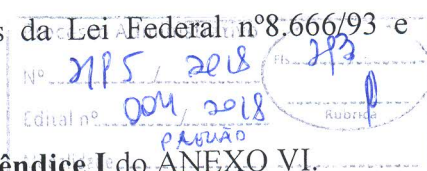 s da Lei Federal nº8.666/93 e
Nº 2185 / 2018 Fls. 273
Edital nº 004 / 2018 Rubrica
PREGÃO
êndice I do ANEXO VI.